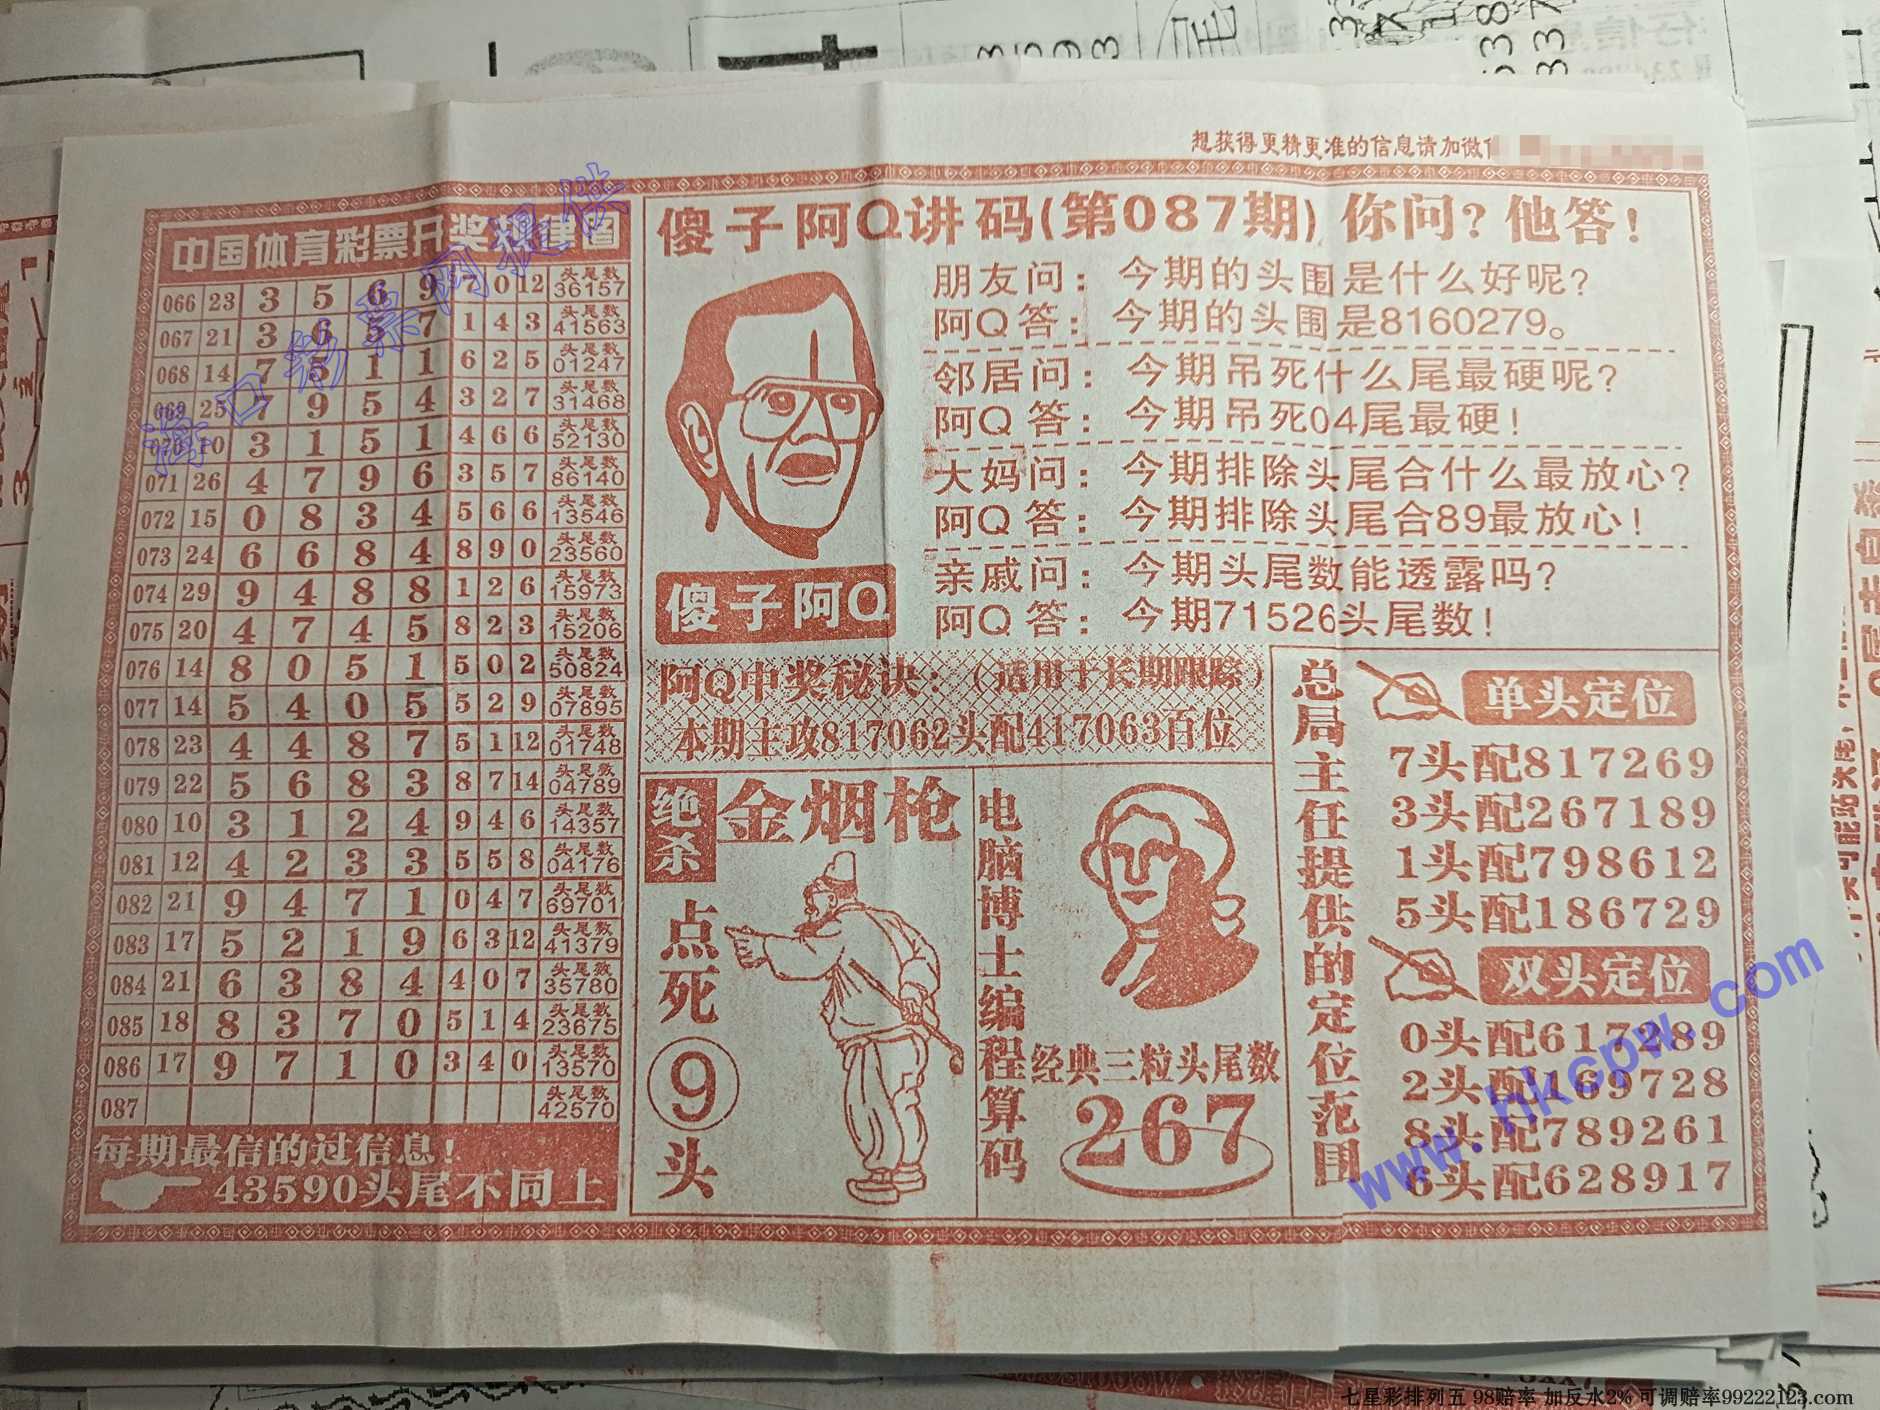 想获得更精更准的信息请加微信
中国体育彩票开奖规律图
066 23 3 5 6 9 7 0 12 头尾数 36157
067 21 3 6 5 7 1 4 3 头尾数 41563
068 14 7 5 1 1 6 2 5 头尾数 01247
069 25 7 9 5 4 3 2 7 头尾数 31468
070 10 3 1 5 1 4 6 6 头尾数 52130
071 26 4 7 9 6 3 5 7 头尾数 86140
072 15 0 8 3 4 5 6 6 头尾数 13546
073 24 6 6 8 4 8 9 0 头尾数 23560
074 29 9 4 8 8 1 2 6 头尾数 15973
075 20 4 7 4 5 8 2 3 头尾数 15206
076 14 8 0 5 1 5 0 2 头尾数 50824
077 14 5 4 0 5 5 2 9 头尾数 07895
078 23 4 4 8 7 5 1 12 头尾数 01748
079 22 5 6 8 3 8 7 14 头尾数 04789
080 10 3 1 2 4 9 4 6 头尾数 14357
081 12 4 2 3 3 5 5 8 头尾数 04176
082 21 9 4 7 1 0 4 7 头尾数 69701
083 17 5 2 1 9 6 3 12 头尾数 41379
084 21 6 3 8 4 4 0 7 头尾数 35780
085 18 8 3 7 0 5 1 4 头尾数 23675
086 17 9 7 1 0 3 4 0 头尾数 13570
087 头尾数 42570
每期最信的过信息!
43590头尾不同上
傻子阿Q讲码(第087期) 你问?他答!
朋友问：今期的头围是什么好呢?
阿Q答：今期的头围是8160279。
邻居问：今期吊死什么尾最硬呢?
阿Q答：今期吊死04尾最硬!
大妈问：今期排除头尾合什么最放心?
阿Q答：今期排除头尾合89最放心!
亲戚问：今期头尾数能透露吗?
阿Q答：今期71526头尾数!
傻子阿Q
阿Q中奖秘诀：(适用于长期跟踪)
本期主攻817062头配417063百位
绝杀
金烟枪
点死⑨头
电脑博士编程算码
经典三粒头尾数
267
总局主任提供的定位范围
单头定位
7头配817269
3头配267189
1头配798612
5头配186729
双头定位
0头配617289
2头配169728
8头配789261
6头配628917
海口彩票网提供
www.hkcpw.com
七星彩排列五 98赔率 加反水2% 可调赔率99222123.com